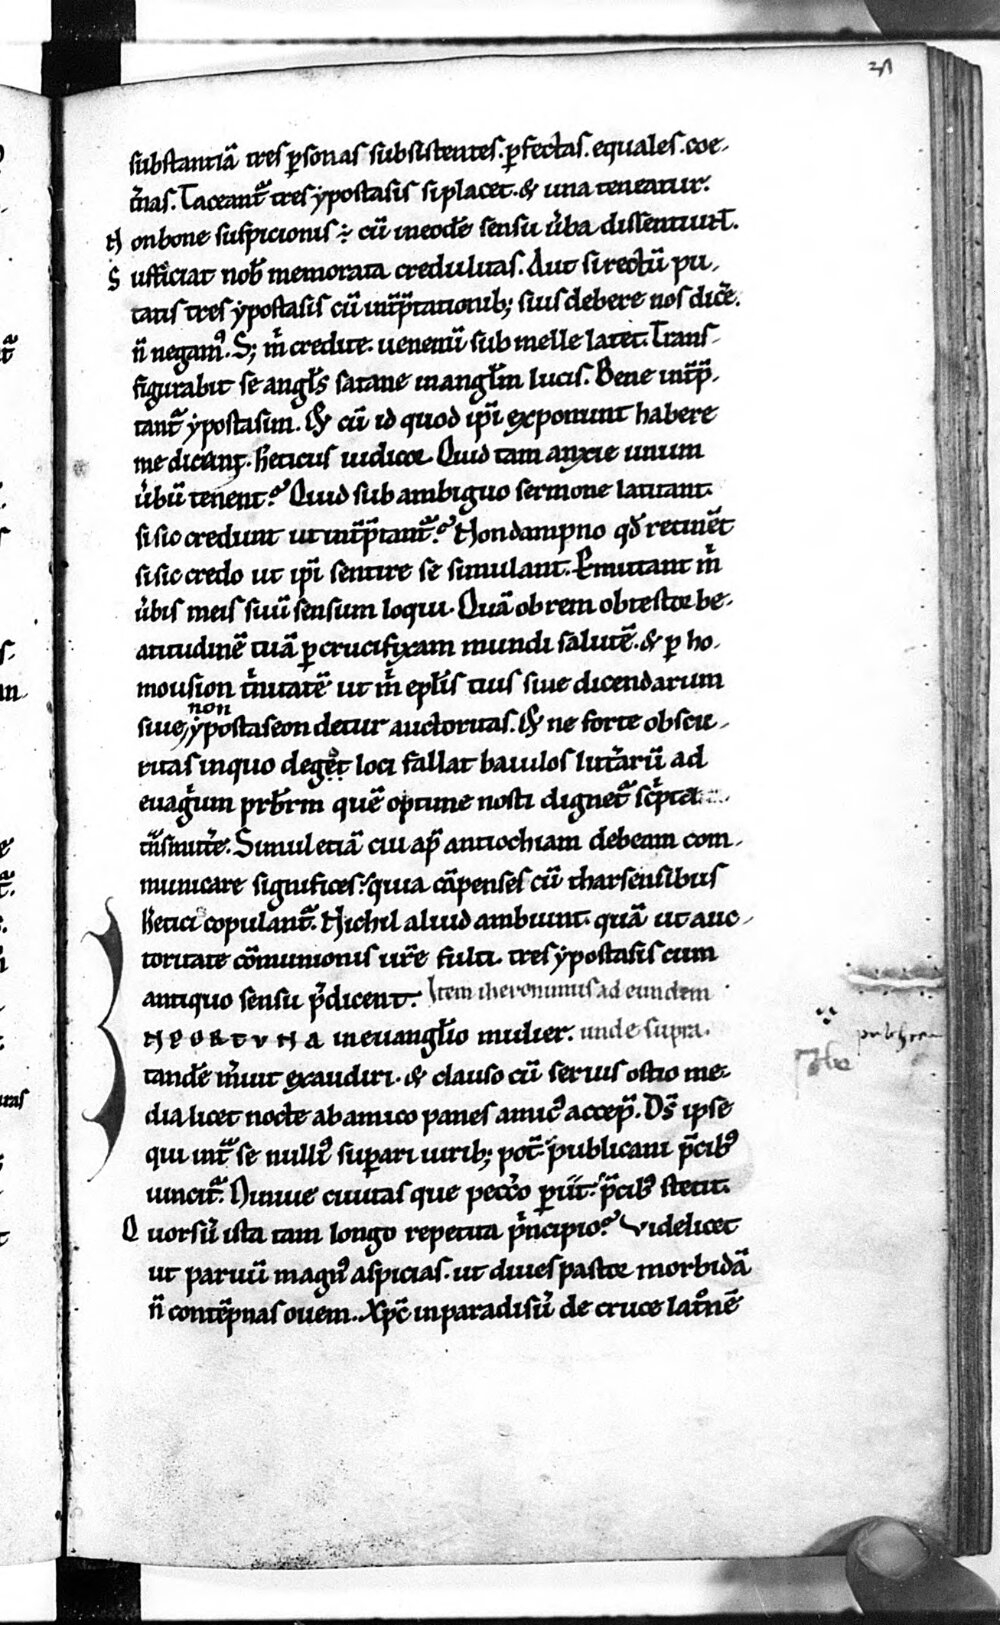 substantiā tres p̲sonas subsistentes. p̲fectas. equales. coe-
t̄nas. Taceant᷑ tres ypostasis si placet. & una teneatur.
N on bone suspicionis ÷ cū in eodē sensu ūba dissentiunt.
S ufficiat nob̄ memorata credulitas. Aut si rectū pu-
tatis tres ypostasis cū int̄p̄tationib; suis debere nos dicē.
n̄ negam᷒. S; m̄ credite. uenenū sub melle latet. Trans-
figurabit se angl̄s satane in angl̄m lucis. Bene int̄p̄-
tant᷑ ypostasim. & cū id quod ip̄i exponunt habere
me dicam. heticus iudicor. Quid tam anxie unum
ūbū tenent? Quid sub ambiguo sermone latitant.
si sic credunt ut int̄p̄tant᷑? Non dampno qd̄ retinēt
si sic credo ut ip̄i sentire se simulant. Pmittant m̄
ūbis meis suū sensum loqui. Quā ob rem obtestor be-
atitudinē tuā p̲ crucifixam mundi salutē. & p̲ ho-
mousion t̄nitatē ut m̄ epl̄is tuis siue dicendarum
siue non ypostaseon detur auctoritas. & ne forte obscu-
ritas in quo degēt loci fallat baiulos litt̄arū ad
euaḡum prb̄rm quē optime nosti dignet᷑ sc̄pta
t̄nsmitt̄e. Simul etiā cui ap̄ antiochiam debeam com-
municare significes. quia cāpenses cū tharsensibus
hetici copulant᷑. Nichil aliud ambiunt. quā ut auc-
toritate cōmunionis ur̄e fulti. tres ypostasis cum
antiquo sensu p̄dicent. Item iheronimus ad eundem
NPORTVNA in euangl̄io mulier. unde supra.
tandē m̄uit exaudiri. & clauso cū seruis ostio me-
dia licet nocte ab amico panes amic᷒ accep̄. Ds̄ ipse
qui int᷑ se null᷒ sup̲ari uirib; pot̄. publicani p̄cib᷒
uincit᷑. Niniue ciuitas que pecc̄o p̲iit. p̄cib᷒ stetit.
Q uorsū ista tam longo repetita p̄ncipio? Videlicet
ut paruū magn᷒ aspicias. ut diues pastor morbidā
n̄ contēpnas ouem. Xpc̄ in paradisū de cruce latōnē